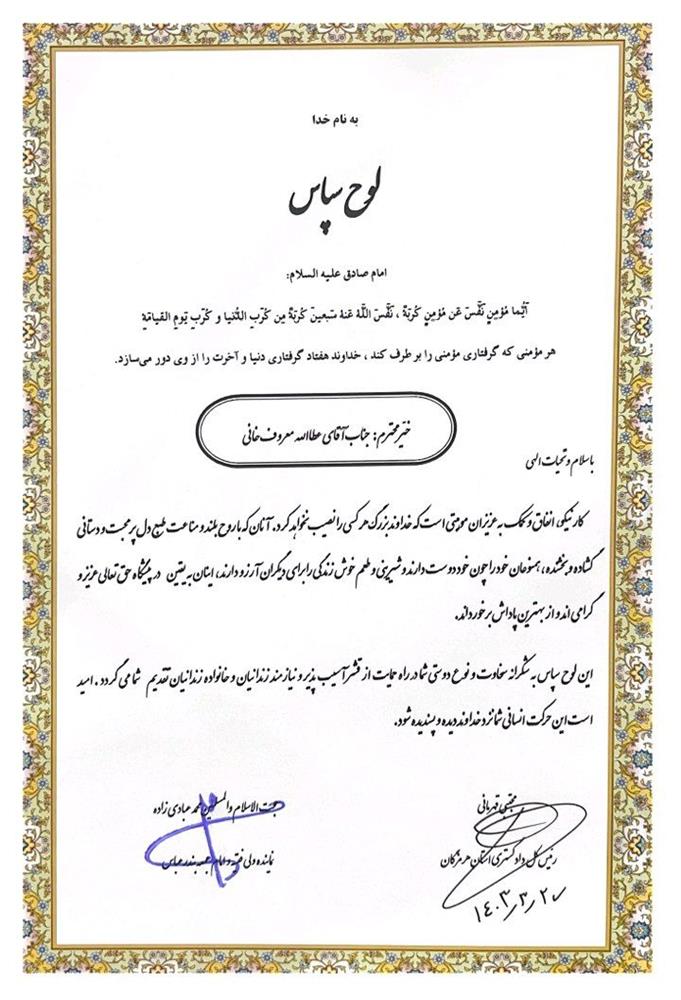 به نام خدا
لوح سپاس
امام صادق علیه السلام:
أیُّما مُؤمِنٍ نَفَّسَ عَن مُؤمِنٍ کُربَةً ، نَفَّسَ اللَّهُ عَنهُ سَبعینَ کُربَةً مِن کُرَبِ الدُّنیا و کُرَبِ یَومِ القیامَةِ
هر مؤمنی که گرفتاری مؤمنی را بر طرف کند ، خداوند هفتاد گرفتاری دنیا و آخرت را از وی دور می‌سازد.
خیّر محترم: جناب آقای عطاالله معروف خانی
با سلام و تحیات الهی
کار نیکو، انفاق و کمک به عزیزان موهبتی است که خداوند بزرگ هر کسی را نصیب نخواهد کرد. آنان که با روح بلند و مناعت طبع دل پر محبت و دستانی
گشاده و بخشنده، همنوعان خود را چون خود دوست دارند و شیرینی و طعم خوش زندگی را برای دیگران آرزو دارند، اینان به یقین در پیشگاه حق تعالی عزیز و
گرامی اند و از بهترین پاداش برخوردارند.
این لوح سپاس به شکرانه سخاوت و نوع دوستی شما در راه حمایت از قشر آسیب پذیر و نیازمند زندانیان و خانواده زندانیان تقدیم شما می گردد . امید
است این حرکت انسانی شما نزد خداوند دیده و پسندیده شود.
مجتبی قهرمانی
رئیس کل دادگستری استان هرمزگان
۱۴۰۳/۳/۲۰
حجت الاسلام والمسلمین محمد عبادی زاده
نماینده ولی فقیه و امام جمعه بندرعباس